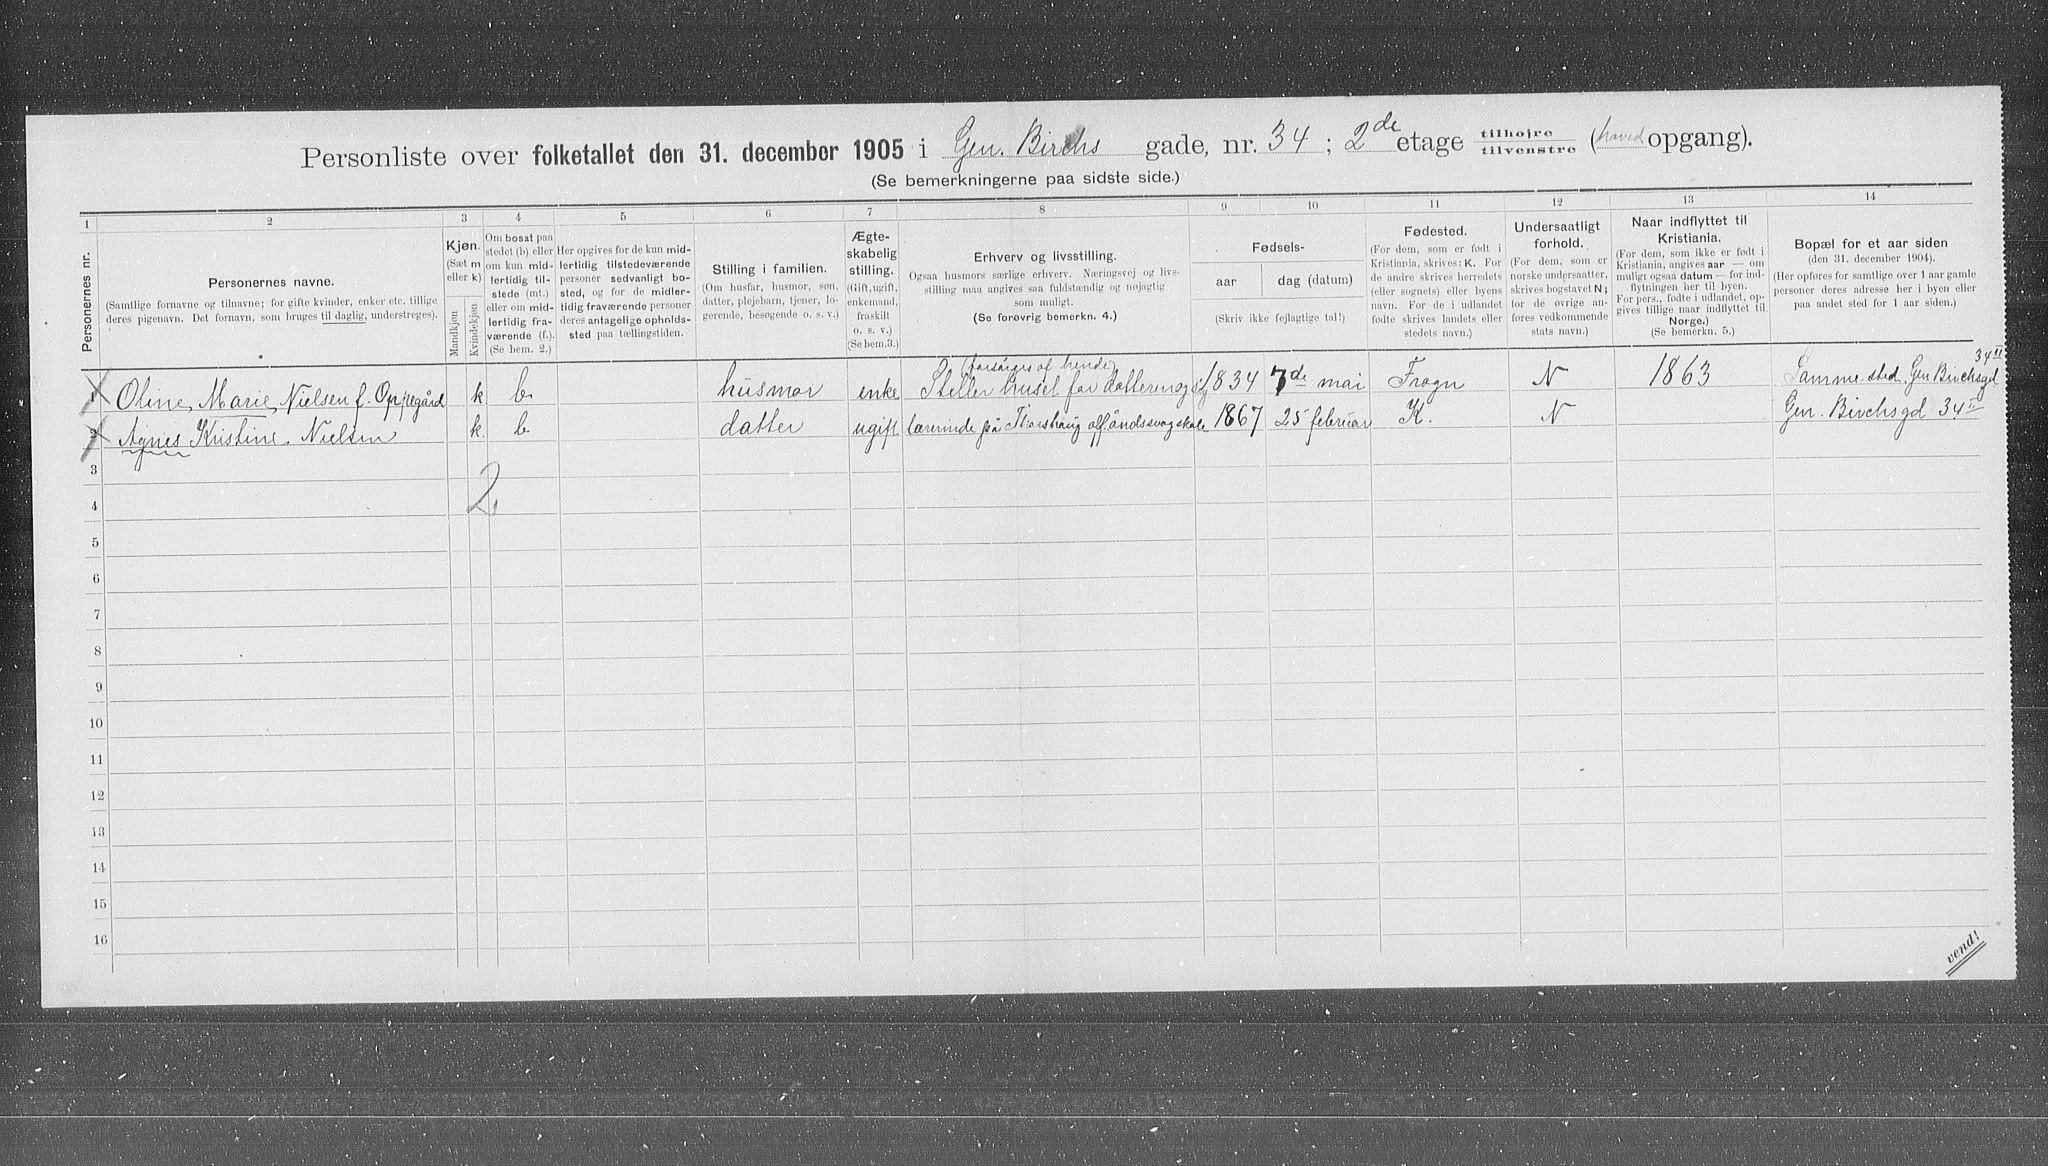 Personliste over folketallet den 31. december 1905 i Gen. Birchs gade, nr. 34 ; 2de etage tilhøjre tilvenstre (hoved opgang).
(Se bemerkningerne paa sidste side.)
1 2 3 4 5 6 7 8 9 10 11 12 13 14
Personernes nr.
Personernes navne.
(Samtlige fornavne og tilnavne; for gifte kvinder, enker etc. tillige
deres pigenavn. Det fornavn, som bruges til daglig, understreges).
Kjøn.
(Sæt m
eller k)
Mandkjøn
Kvindekjøn
Om bosat paa
stedet (b) eller
om kun mid-
lertidig til-
stede (mt.)
eller om mid-
lertidig fra-
værende (f.).
(Se bem. 2.)
Her opgives for de kun mid-
lertidig tilstedeværende
personer sedvanligt bo-
sted, og for de midler-
tidig fraværende personer
deres antagelige opholds-
sted paa tællingstiden.
Stilling i familien.
(Om husfar, husmor, søn,
datter, plejebarn, tjener, lo-
gerende, besøgende o. s. v.)
Ægte-
skabelig
stilling.
(Gift, ugift,
enkemand,
fraskilt
o. s. v.)
(Se bem.3.)
Erhverv og livsstilling.
Ogsaa husmors særlige erhverv. Næringsvej og livs-
stilling maa angives saa fuldstændig og nøjagtig
som muligt.
(Se forøvrig bemerkn. 4.)
Fødsels-
aar dag (datum)
(Skriv ikke fejlagtige tal!)
Fødested.
(For dem, som er født i
Kristiania, skrives: K. For
de andre skrives herredets
(eller sognets) eller byens
navn. For de i udlandet
fødte skrives landets eller
stedets navn.)
Undersaatligt
forhold.
(For dem, som er
norske undersaatter,
skrives bogstavet N;
for de øvrige an-
føres vedkommende
stats navn.)
Naar indflyttet til
Kristiania.
(For dem, som ikke er født i
Kristiania, angives aar — om
muligt ogsaa datum — for ind-
flytningen her til byen.
For pers., fødte i udlandet, op-
gives tillige naar indflyttet til
Norge.)
(Se bemerkn. 5.)
Bopæl for et aar siden
(den 31. december 1904).
(Her opføres for samtlige over 1 aar gamle
personer deres adresse her i byen eller
paa andet sted for 1 aar siden.)
1 Oline Marie Nielsen f. Oppegård k b husmor enke Steller huset for datteren og (forsørges af hende) 1834 7de mai Frogn N 1863 Samme sted. Gen Birchsgd 34 II
2 Agnes Kristine Nielsen k b datter ugift lærerinde på Thorshaug åndssvageskole 1867 25 februar K. N Gen. Birchsgd 34 II
3
2.
4
5
6
7
8
9
10
11
12
13
14
15
16
vend!